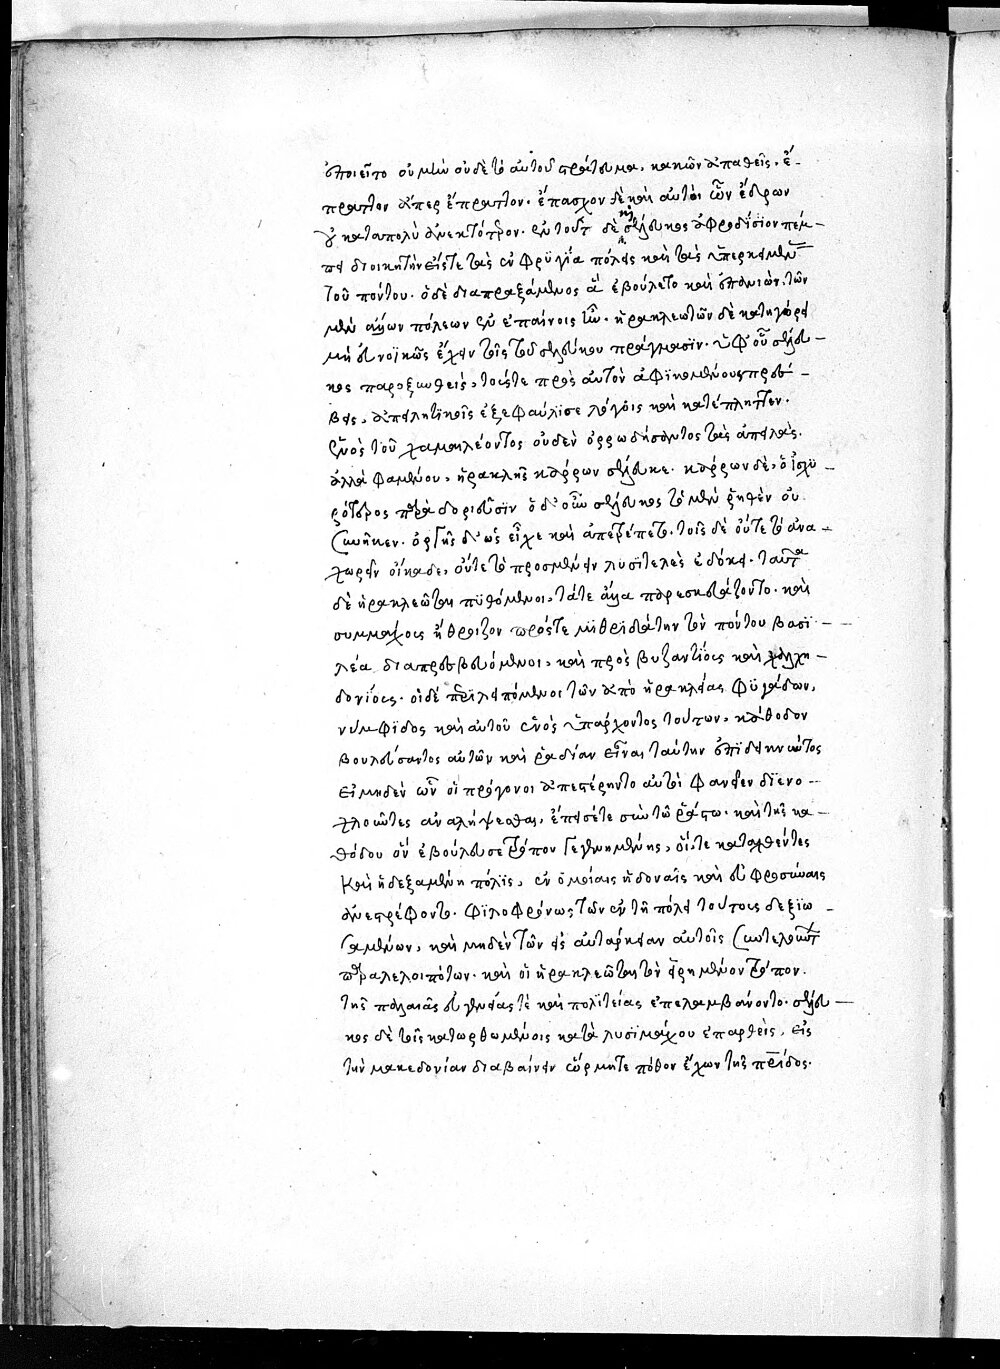 ἐποιεῖτο οὐ μὴν οὐδὲ τὸ αὐτοῦ στράτευμα, κακῶν ἀπαθεῖς, ἔ-
πραττον ἅπερ ἔπραττον. ἔπασχον δὲ καὶ αὐτοὶ ὧν ἔδρων
οὐ καταπολὺ ἀνεκτότερον. ἐν τούτῳ δὲ σέλευκος ἀφροδίσϊον πέμ-
πει διοικητὴν εἴς τε τὰς ἐν φρϋγία πόλεις καὶ τὰς ὑπερκειμένας
τοῦ πόντου. ὁ δὲ διαπραξάμενος ἃ ἐβούλετο καὶ ἐπανιὼν, τῶν
μὲν ἄλλων πόλεων ἐν ἐπαίνοις ἦν. ἡρακλεωτῶν δὲ κατηγόρει
μὴ εὐνοϊκῶς ἔχειν τοῖς τοῦ σελεύκου πράγμασϊν. ὑφ' οὗ σέλευ-
κος παροξυνθεὶς, τούς τε πρὸς αὐτὸν ἀφϊκομένους πρέσ-
βεις, ἀπειλητϊκοῖς ἐξεφαύλισε λόγοις καὶ κατέπληττεν.
ἑνὸς τοῦ χαμαιλέοντος οὐδὲν ὀρρωδήσαντος τὰς ἀπειλὰς.
ἀλλὰ φαμένου, ἡρακλῆς κάρρων σέλευκε. κάρρων δὲ, ὁ ἰσχϋ-
ρότερος παρὰ δωριεῦσϊν ὁ δ' οὖν σέλευκος τὸ μὲν ῥηθὲν οὐ
συνῆκεν. ὀργῆς δ' ὡς εἶχε καὶ ἀπετρέπετο. τοῖς δὲ οὔτε τὸ ἀνα-
χωρεῖν οἴκαδε, οὔτε τὸ προσμένειν λυσϊτελὲς ἐδόκει. ταῦτα
δὲ ἡρακλεῶται πϋθόμενοι, τά τε ἄλλα παρεσκευάζοντο. καὶ
συμμάχους ἤθροιζον πρός τε μϊθρϊδάτην τὸν πόντου βασϊ-
λέα διαπρεσβευόμενοι, καὶ πρὸς βυζαντίους καὶ χαλχη-
δονίους. οἱ δὲ περϊλειπόμενοι τῶν ἀπὸ ἡρακλείας φϋγάδων,
νύμφϊδος καὶ αὐτοῦ ἑνὸς ὑπάρχοντος τούτων, κάθοδον
βουλεύσαντος αὐτῶν καὶ ῥαδίαν εἶναι ταύτην ἐπϊδεικνύντος
εἰ μηδὲν ὧν οἱ πρόγονοι ἀπεστέρηντο αὐτοὶ φανεῖεν δϊενο-
χλοῦντες ἀναλήψεσθαι, ἔπεισέ τε σὺν τῶ ῥάστω. καὶ τῆς κα-
θόδου ὃν ἐβούλευσε τρόπον γεγενημένης, οἵ τε καταχθέντες
καὶ ἡ δεξαμένη πόλϊς, ἐν ὁμοίαις ἡδοναῖς καὶ εὐφροσύναις
ἀνεστρέφοντο. φϊλοφρόνως τῶν ἐν τῇ πόλει τούτους δεξϊω-
σαμένων, καὶ μηδὲν τῶν εἰς αὐτάρκειαν αὐτοῖς συντελούντων
παραλελοιπότων. καὶ οἱ ἡρακλεῶται τὸν εἰρημένον τρόπον.
τῆς παλαιᾶς εὐγενείας τὲ καὶ πολϊτείας ἐπελαμβάνοντο. σέλευ-
κος δὲ τοῖς κατωρθωμένοις κατὰ λυσϊμάχου ἐπαρθεὶς, εἰς
τὴν μακεδονίαν διαβαίνειν ὥρμητο πόθον ἔχων τῆς πατρίδος.